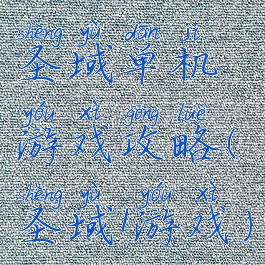 shèng yù dān jī
圣域单机
yóu xì gōng lüè
游戏攻略(
shèng yù yóu xì
圣域1游戏)